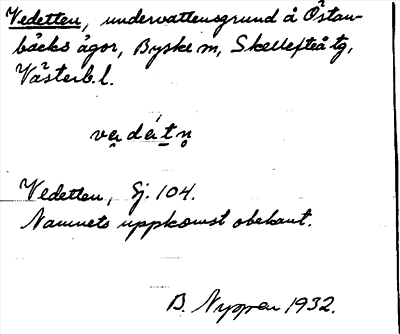 Vedetten, undervattensgrund å Östan-
bäcks ägor, Byske m, Skellefteå tg,
Västerb. l.
vędę́tṇ
Vedetten, Sj. 104.
Namnets uppkomst obekant.
B. Nyppen 1932.